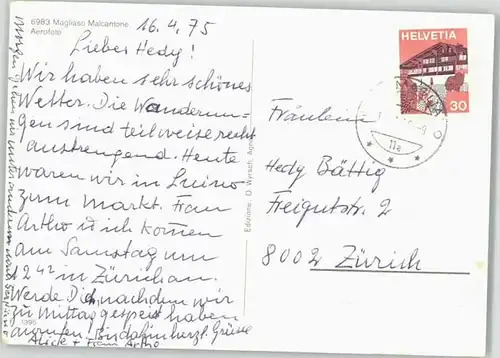 6983 Magliaso Malcantone
Aerofoto
16.4.75
Liebes Hedy!
Wir haben sehr schönes
Wetter. Die Wanderun-
gen sind teilweise recht
anstrengend. Heute
waren wir in Luino
zum Markt. Frau
Artho u ich kommen
am Samstag um
12 42 in Zürich an.
Werde Dich, nachdem wir
zu Mittag gespeist haben
anrufen. Bis dahin herzl. Grüsse
Alice + Frau Artho
Morgen gehen wir
1395
Edizione: O. Wyrsch,
HELVETIA
30
11a
Fräulein
Hedy Bättig
Freigutstr. 2
8002 Zürich